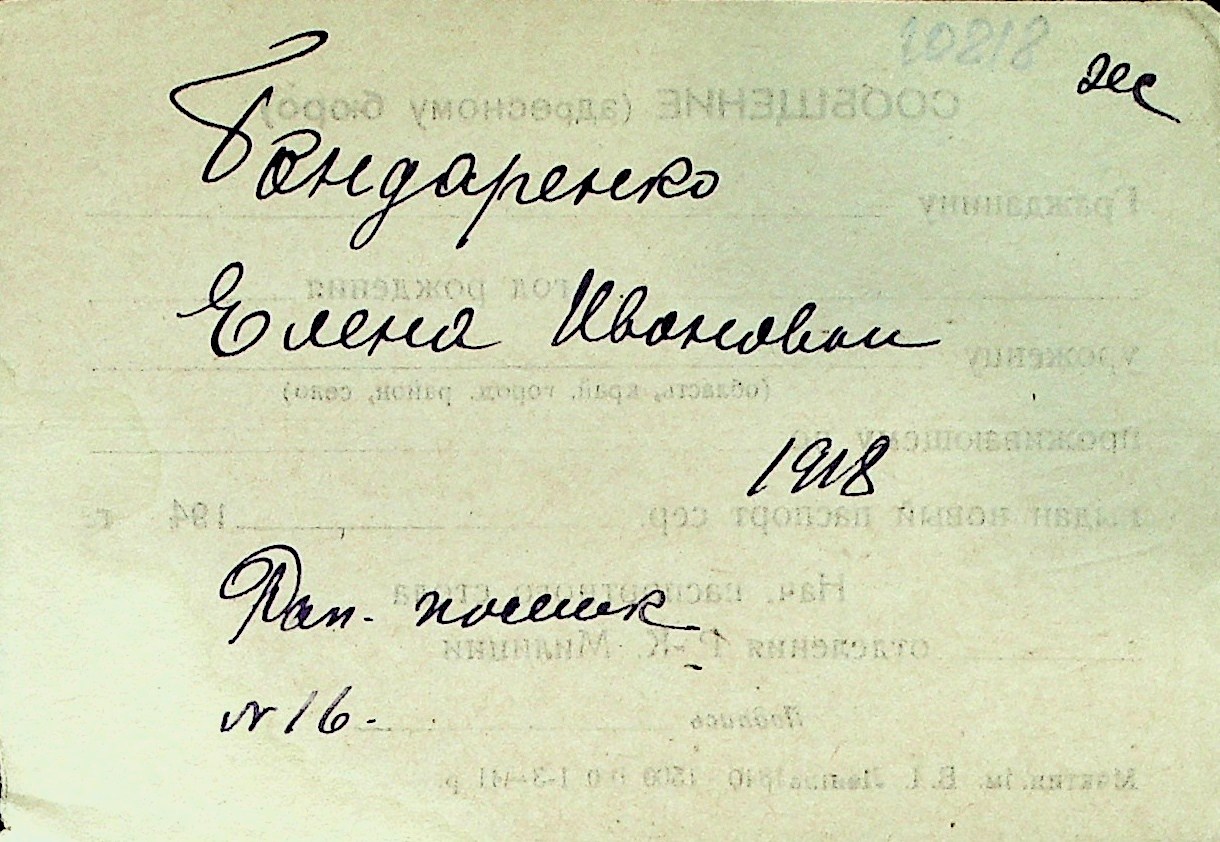 10818
Бондаренко
Елена Ивановны
1918
Рап. поселк
№ 16.
СООБЩЕНИЕ (адресному бюро)
Гражданину
год рождения
уроженцу
(область, край, город, район, село)
проживающему по
выдан новый паспорт сер. 194 г.
Нач. паспортного стола
отделения Р.-К. Милиции
Подпись